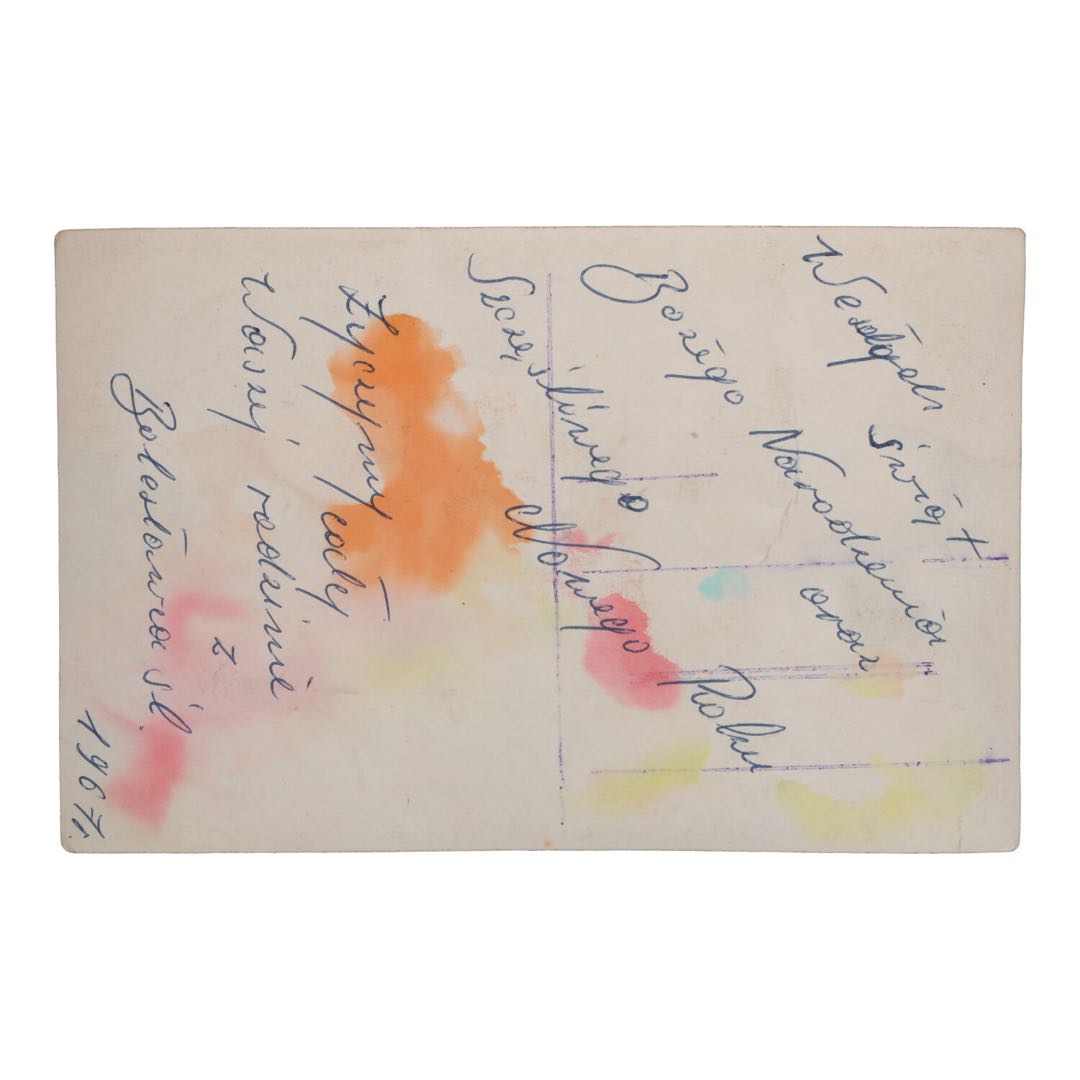 Wesołych świąt
Bożego Narodzenia
oraz
Szczęśliwego Nowego Roku
życzymy całej
Waszej rodzinie
z
Bolesławca śl.
1967r.